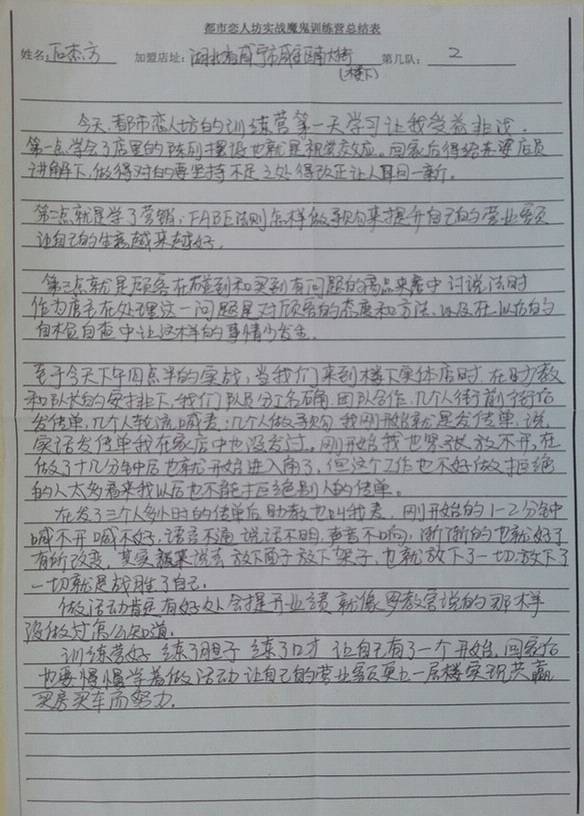 都市恋人坊实战魔鬼训练营总结表
姓名: 石杰方 加盟店址: 湖北省咸宁市 南大街 第几队: 2
(楼下)
今天都市恋人坊的训练营第一天学习让我受益非浅.
第一点学会了店里的陈列摆设也就是视觉效应。回家后得给东婆店员
讲解下,做得对的要坚持不足之处得改正让人耳目一新。
第二点就是学了营销,FABE法则怎样做导购来提升自己的营业额
让自己的生意越来越好.
第三点就是顾客在碰到和买到有问题的商品来店中讨说法时
作为店主在处理这一问题是对顾客的态度和方法,以及在以后的
自检自查中让这样的事情少发生.
至于今天下午四点半的实战,当我们来到楼下实体店时,在助教
和队长的安排下,我们队员分工名确,团队合作,几个人街前街后
发传单,几个人轮流喊麦,几个人做导购,我刚开始就是发传单,说
实话发传单我在家店中也没发过。刚开始我也紧张放不开,在
做了十几分钟后也就开始进入角了,但这个工作也不好做拒绝
的人太多看来我以后也不能拒绝别人的传单。
在发了三个多小时的传单后助教也叫我喊麦,刚开始的1-2分钟
喊不开喊不好,语言不通说话不明,声音不响,渐渐的也就好了
有所改变,其实 来说去放下面子放下架子,也就放下了一切,放下了
一切就是战胜了自己.
做活动肯定有好处会提升业绩就像罗教官说的那样
没做过怎么知道.
训练营好 练了胆子 练了口才 让自己有了一个开始,回家后
也要慢慢学着做活动让自己的营业额更上一层楼实现共赢
买房买车而努力.